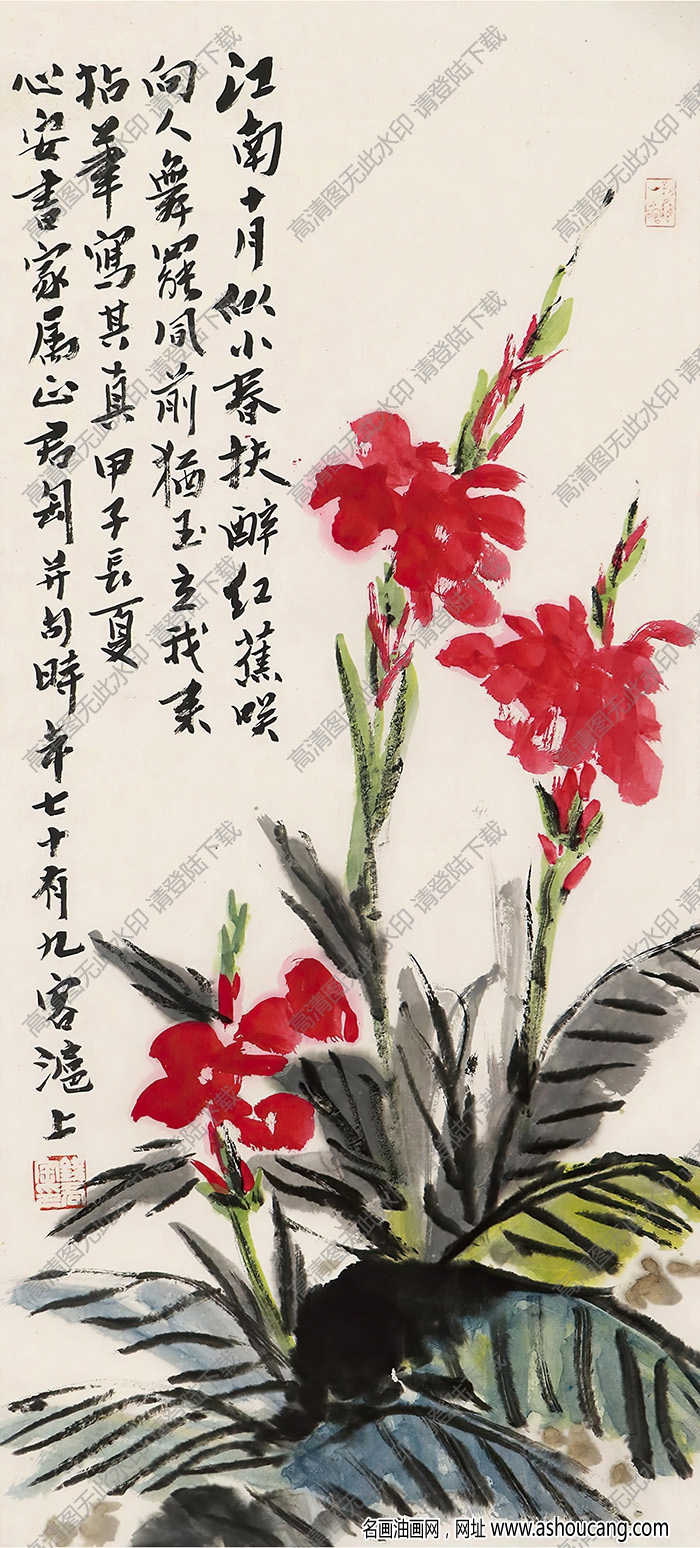 江南十月似小春扶醉红蕉笑
向人舞罢风前犹玉立我来
拈笔写其真甲子长夏
心安书家属正君匋并句时年七十有九客沪上
高清图无此水印 请登陆下载
名画油画网，网址 www.ashoucang.com